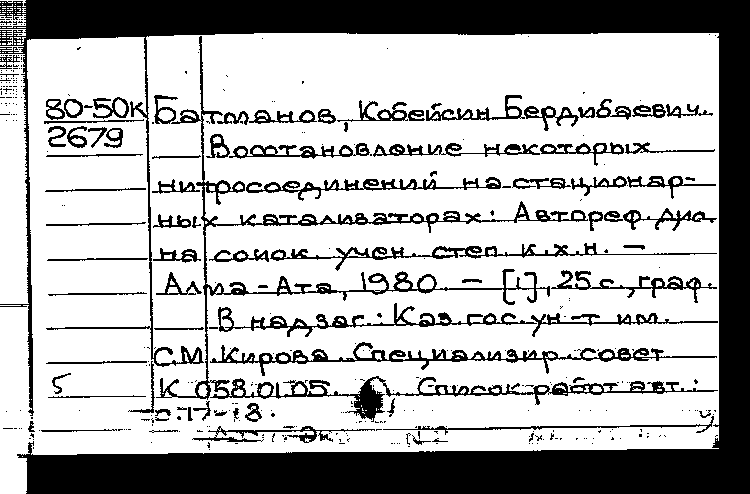 80-50к Батманов, Кобейсин Бердибаевич.
2679 Восстановление некоторых
нитросоединений на стационар-
ных катализаторах: Автореф. дис.
на соиск. учен. степ. к.х.н. –
Алма-Ата, 1980. – [1], 25 с., граф.
В надзаг.: Каз. гос. ун-т им.
С.М. Кирова. Специализир. совет
5 К 058.01.05. Список работ авт.:
с. 17-18.